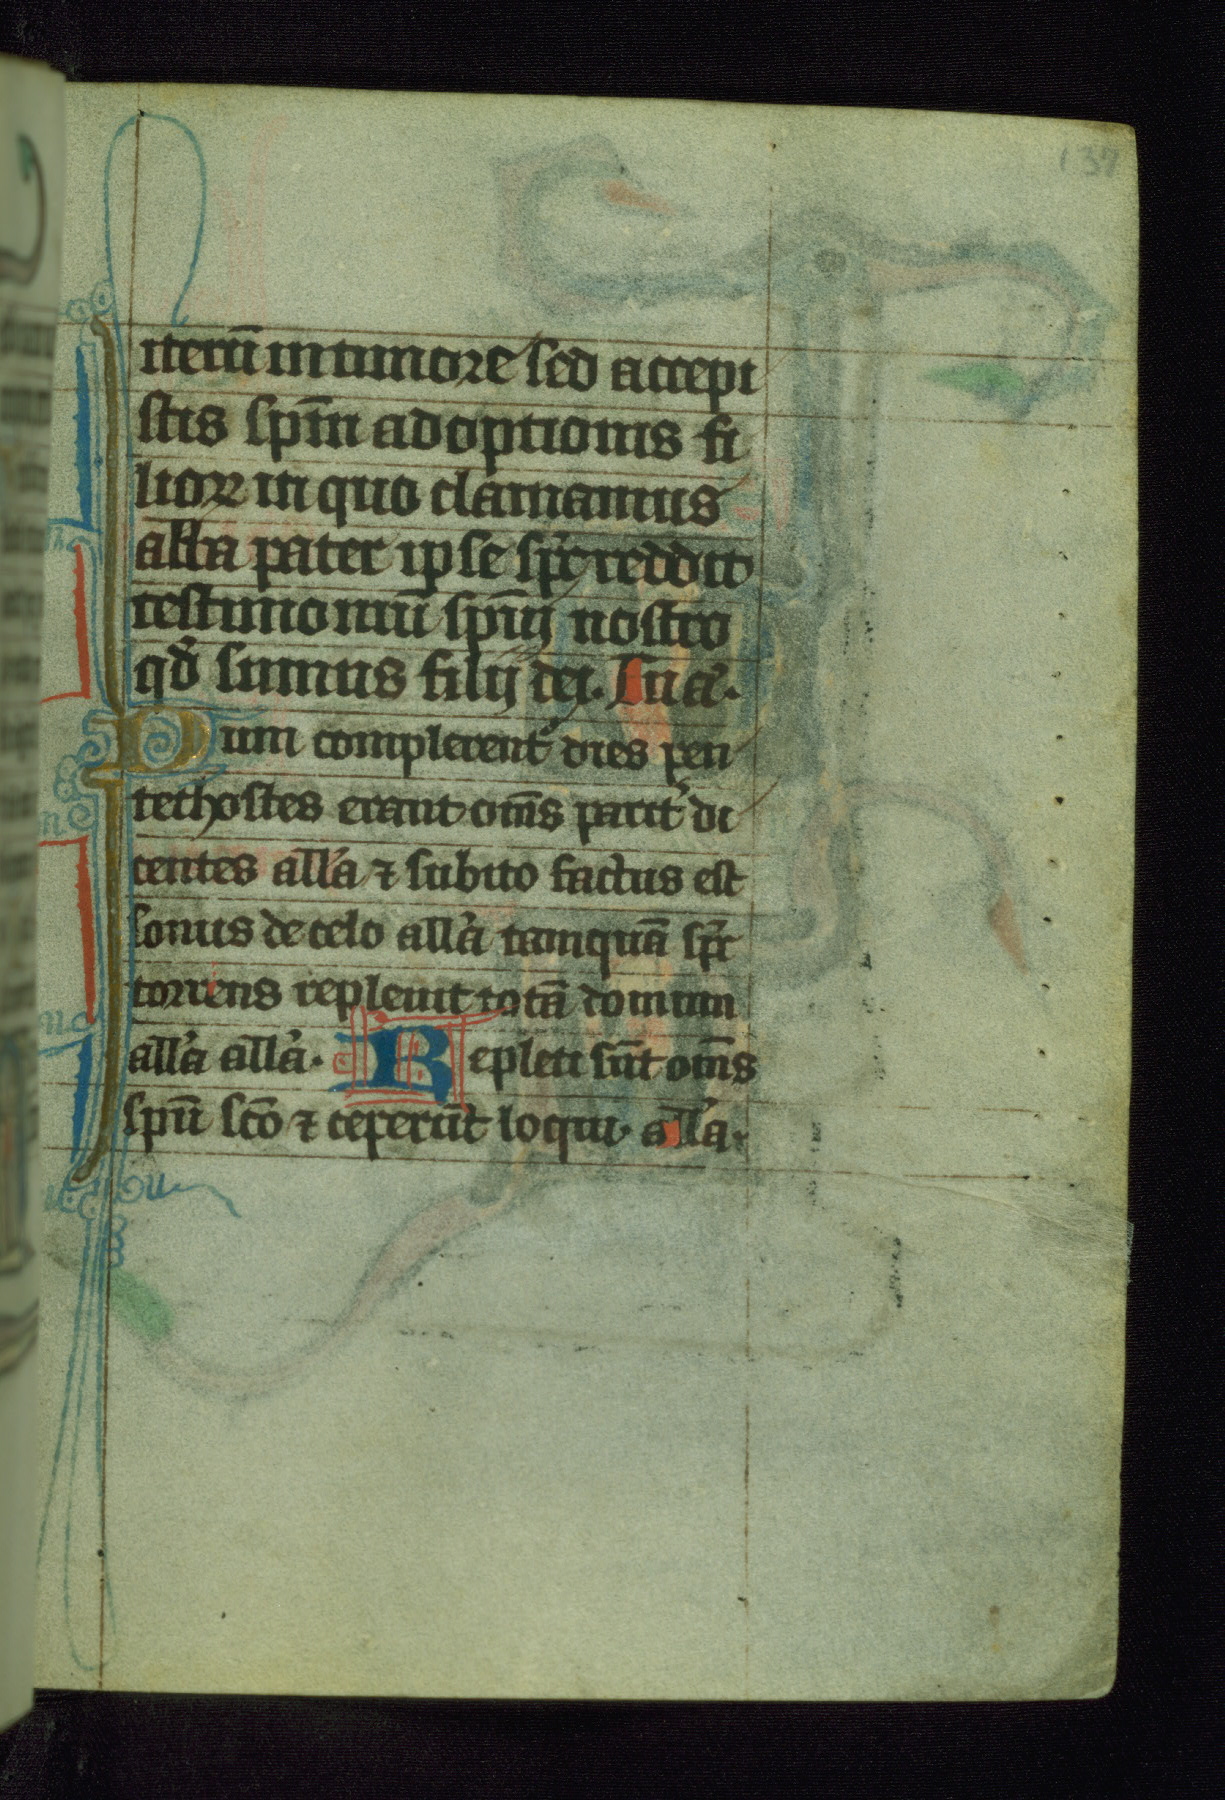 137
iterū in timore sed accepi
stis sp̄m adoptionis fi
lioꝝ in quo clamamus
abba pater ipse sp̄c reddit
testimoniū sp̄ui nostro
qd̄ sumus filij dei. Tu aͣ.
Dum complerent᷑ dies pen
tethostes erant om̄s parit᷑ di
centes all'a ⁊ subito factus est
sonus de celo all'a tamquā sp̄c
torrens repleuit totā domum
all'a all'a. Repleti sūt om̄s
sp̄u sc̄o ⁊ ceperūt loqui. all'a.